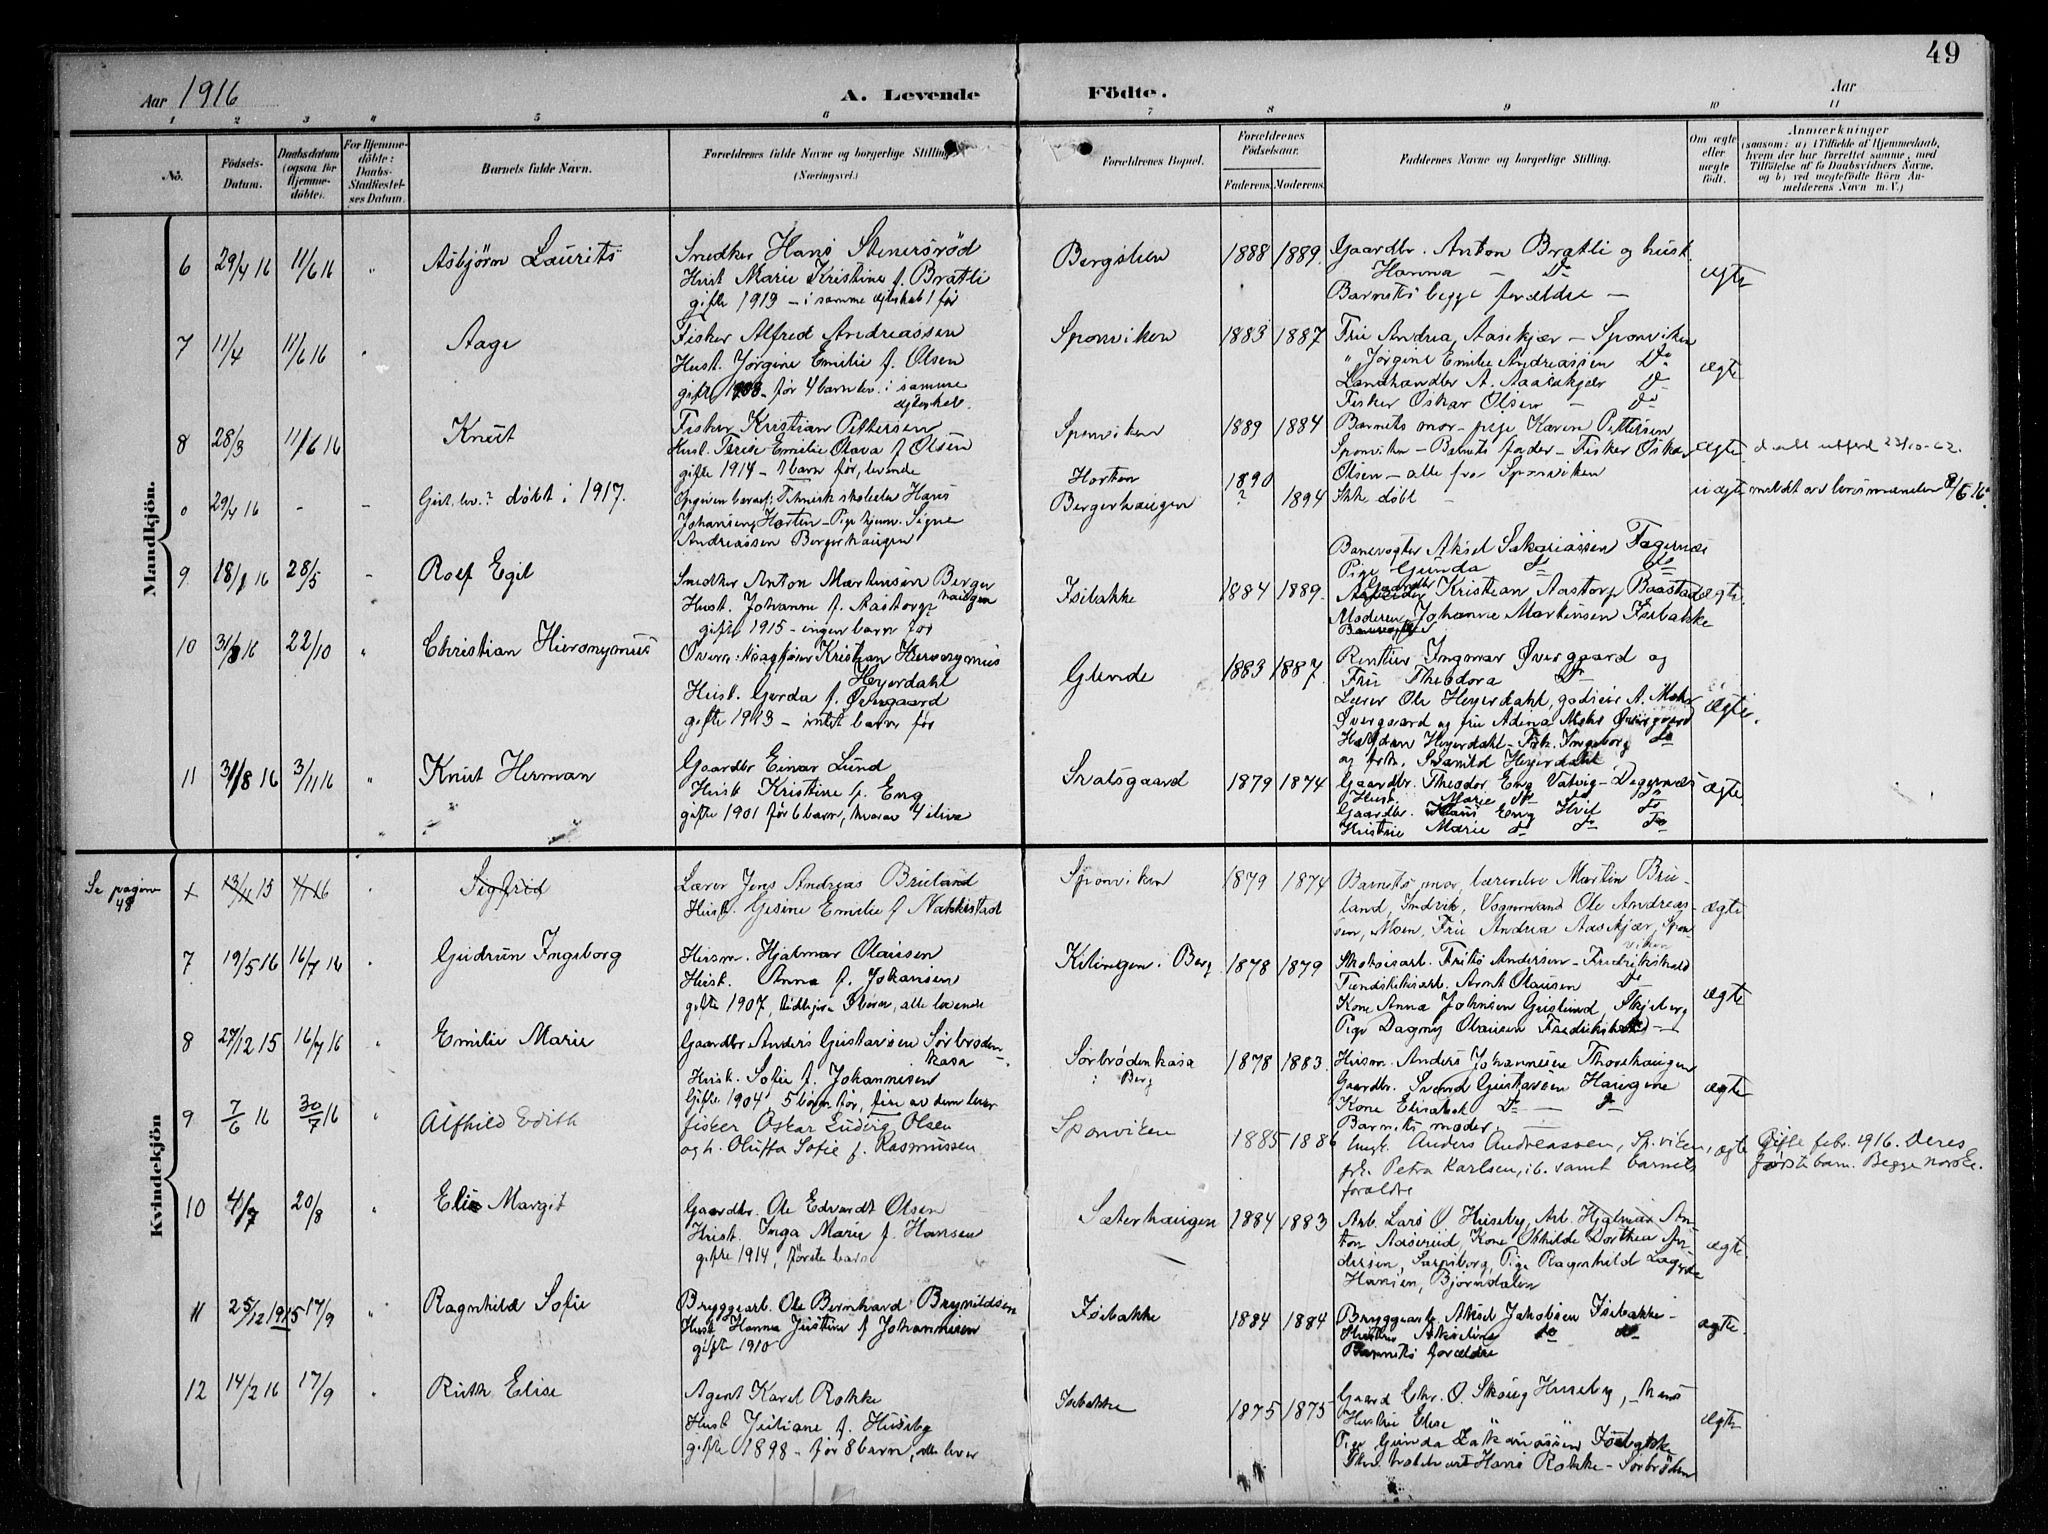 49
Aar 1916
A. Levende Födte.
Aar
1 2 3 4 5 6 7 8 9 10 11
No.
Födsels-Datum.
Daabsdatum (ogsaa for Hjemme-döbte).
For Hjemme-döbte: Daabs-Stadfæstel-ses Datum.
Barnets fulde Navn.
Forældrenes fulde Navne og borgerlige Stilling
(Næringsvei.)
Forældrenes Bopæl.
Forældrenes Födselsaar.
Faderens. Moderens.
Faddernes Navne og borgerlige Stilling.
Om ægte eller uægte födt.
Anmærkninger
(saasom: a) i Tilfælde af Hjemmedaab, hvem der har forrettet samme, med Tilföielse af to Daabsvidners Navne, og b) ved uægtefödte Börn An-melderens Navn m. V.)
Mandkjön.
6 29/4 16 11/6 16 " Asbjørn Laurits
Snedker Hans Stenersrød
Hust. Marie Kristine f. Bratli
gifte 1913 – i samme ægteskab 1 før
Bergslien 1888 1889
Gaardbr. Anton Bratli og hust.
Hanna – Do
Barnets begge forældre –
ægte
7 11/4 11/6 16 " Aage
Fisker Alfred Andreassen
Hust. Jørgine Emilie f. Olsen
gifte 1908 – før 4 barn lev. i samme
ægteskab.
Sponviken 1883 1887
Fru Andrea Aasekjær – Sponviken
" Jørgine Emilie Andreassen Do
Landhandler A. Aasekjær Do
Fisker Oskar Olsen – Do
ægte
8 28/3 11/6 16 Knut
Fisker Kristian Pettersen
Hust. Emilie Olava f. Olsen
gifte 1914 – 1 barn før, levende
Sponviken 1889 1884
Barnets mor – pige Karen Pettersen
Sponviken – Barnets fader – Fisker Oskar
Olsen – alle fra Sponviken
ægte
0 29/4 16 – – døbt i 1917.
Johansen, Horten – Pige hjem. Signe
Andreassen Bergerhaugen
Horten
Bergerhaugen
1890
?
1894
Ikke døbt –
uægte meldt av lensmanden 8/6 16.
9 18/1 16 28/5 – Rolf Egil
Snedker Anton Martinsen Berger
haugen
Hust. Johanne f. Aastorp
gifte 1915 – ingen barn før
Isebakke 1884 1889.
Banevogter Aksel Sakariassen Fagernæs
Pige Gunda Do Do
Gaardbr Kristian Aastorp Baastad
Moderen Johanne Martinsen Isebakke
ægte.
10 31/3 16 22/10 " Christian Hieronymus
Kristian Hieronymus
Heyerdahl
Hust. Gerda f. Övergaard
gifte 1913 – intet barn før
Glende 1883 1887
Rentier Ingmar Øvergaard og
Fru Theodora Do
Lærer Ole Heyerdahl, godseier A. Mohr
Øvergaard og fru Adina Mohr Øvergaard
Halfdan Heyerdahl – Frk. Ingeborg do
og frk. Svanild Heyerdahl
ægte.
11 31/8 16 3/11 16 " Knut Herman
Gaardbr Einar Lund
Hust. Kristine f. Eng
gifte 1901 før 6 barn, hvorav 4 ilive
Svalsgaard 1879 1874
Gaardbr. Theodor Eng Vatvig – Degernæs
Hust. Marie do do
Gaardbr. Hans Eng Hvil do
Hustrue Marie do do do
ægte
Kvindekjön
Se pagina 48
x 13/11 15 1/1 16 " Sigfrid
Lærer Jens Andreas Brieland
Hust. Gesine Emilie f. Nakkestad
Sponviken 1879 1874
Barnets mor, lærerinde Martin Brie-
land, Indvik, Vognmand Ole Andreas-
sen, Moen, Fru Andrea Aasekjær, Spon-
viken
ægte
7 19/5 16 16/7 16 " Gudrun Ingeborg
Husm. Hjalmar Olausen
Hust. Anna f. Johansen
gifte 1907, tidligere 3 børn, alle levende
Kilengen i Berg 1878 1879
Skotøiarb. Frits Andersen – Fredrikshald
Fyrstikkarb. Arnt Olausen Do
Kone Anna Johnsen Grislund, Skjeberg
Pige Dagny Olausen Fredrikshald
ægte
8 27/12 15 16/7 16 " Emilie Marie
Gaardbr Anders Gustavsen Sørbrøden-
kasa
Hust. Sofie f. Johannesen
Gifte 1904 5 børn før, fire av dem lever
Sørbrødenkasa
i Berg
1878 1883.
Husm. Anders Johannesen Thorehaugen
Gaardbr. Svend Gustavsen Haugene
Kone Elisabet Do – Do
Barnets moder. –
ægte
9 7/6 16 30/7 16 " Alfhild Edith
fisker Oskar Ludvig Olsen
og h. Oluffa Sofie f. Rasmussen
Sponviken 1885 1886
Ungk. Anders Andreassen, Sp.viken,
frk. Petra Karlsen, ib. samt barnets
foraldre
ægte
Gifte febr. 1916. Deres
første barn. Begge norske.
10 4/7 20/8 " Elie Margit
Gaardbr. Ole Edvardt Olsen
Hust. Inga Marie f. Hansen
gifte 1914, første barn
Sæterhaugen 1884 1883
Arb. Lars O. Huseby, Arb. Hjalmar An-
ton Aaserud, Kone Othilde Dorthea An-
dersen, Sarpsborg, Pige Ragnhild Lagyda
Hansen, Bjørndalen
ægte
11 25/12 1915 17/9 " Ragnhild Sofie
Bryggearb. Ole Bernhard Brynildsen
Hust Hanna Justine f Johannesen
gifte 1910
Isebakke 1884 1884
Bryggearb Aksel Jakobsen Isebakke –
Hustru Akseline do do
Barnets forældre
ægte.
12 14/2 16 17/9 " Ruth Elise
Agent Karel Rokke
Hust Juliane f. Huseby
gifte 1898 – før 8 barn, alle lever
Isebakke 1875 1875
Gaard Chr. O. Skaug Huseby, –
Hustrue Elise " "
Pige Gunda Zakariassen Isebakke
Hans Rokke – Sørbrøden
ægte